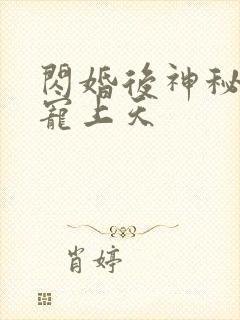 閃婚後神秘
寵上天
肖婷